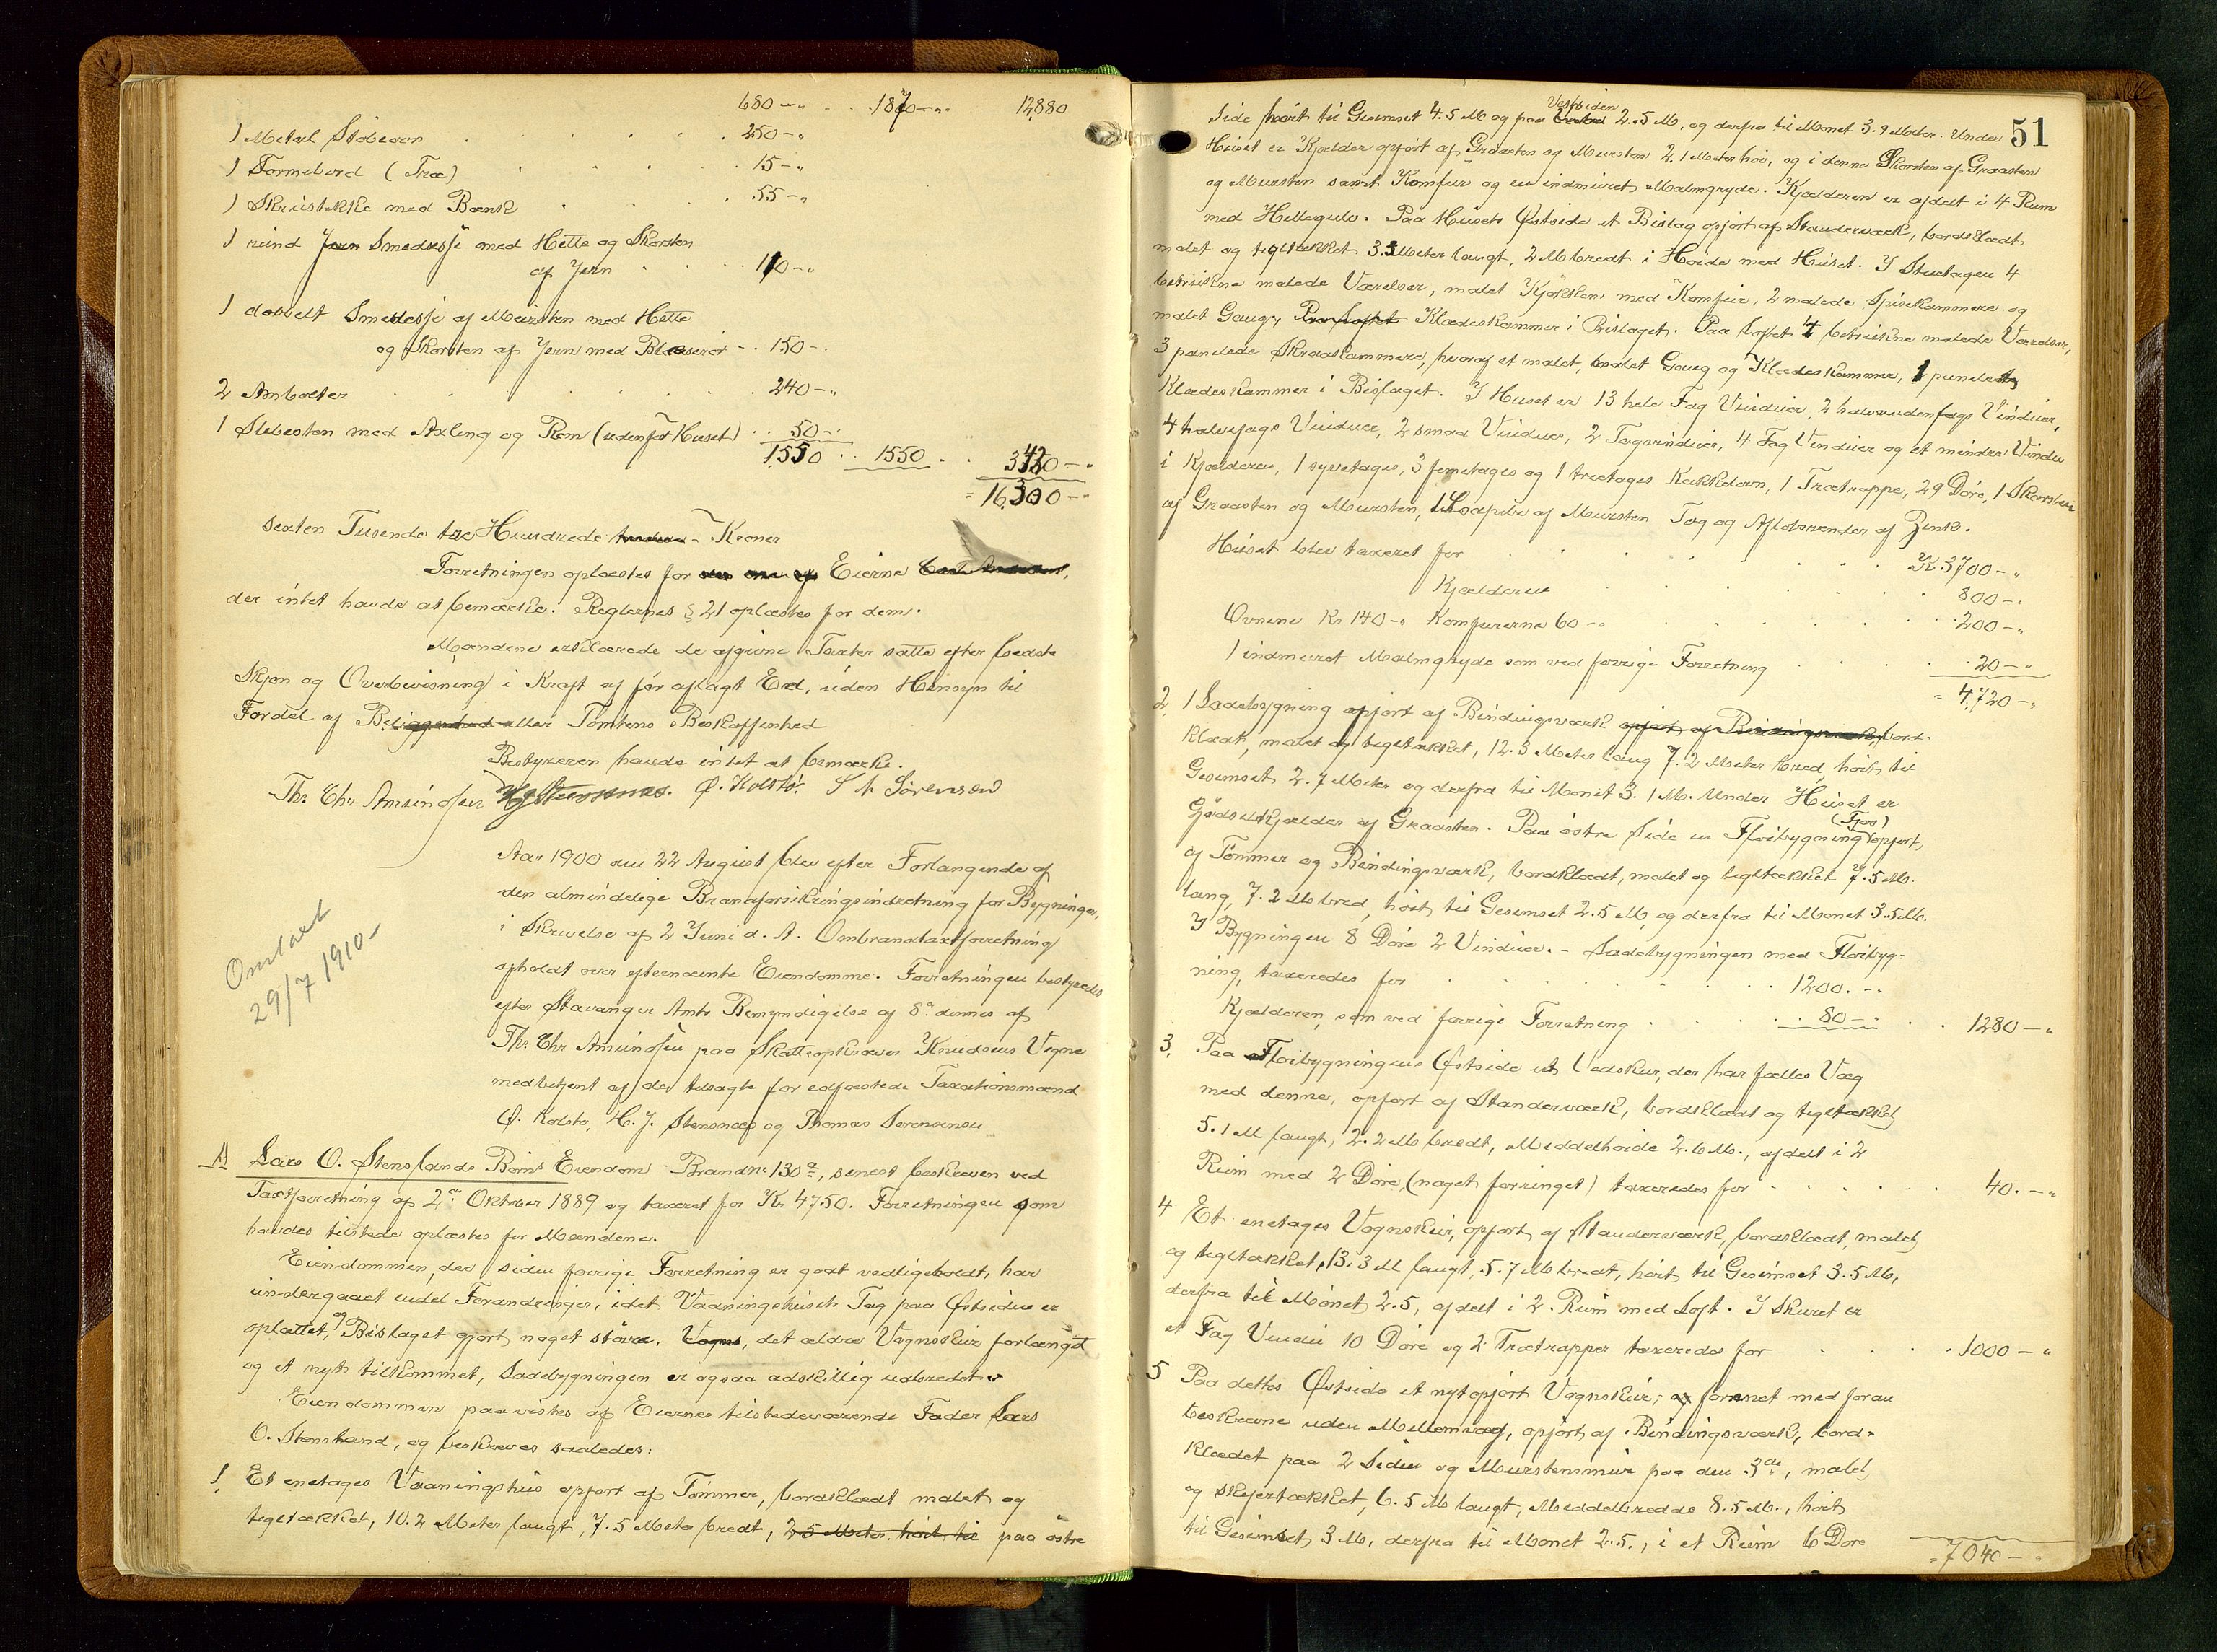 680 -„ . . 1870 -„ 12,880
1 Metal Støbeovn . . . . 250 -„
1 Formebord (Træ) . . . . 15 -„
1 Skruestikke med Bænk . . . 55 -„
1 rund Jern Smedeesse med Hette og Skorsten
af Jern . . . 110 -„
1 dobbelt Smedeesse af Mursten med Hette
og Skorsten af Jern med Blæserør - . 150 -„
2 Ambolter . . . . . . . 240 -„
1 Slibesten med Axling og Rem (udenfor Huset) . . 50 -„
1550 . . 1550 . . 3420 -„
= 16300 -„
sexten Tusende tre Hundrede Kroner
Forretningen oplæstes for Eierne
der intet havde at bemærke. Reglernes § 21 oplæstes for dem.
Mændene erklærede de afgivne Taxter satte efter bedste
Skjøn og Overbevisning i Kraft af før aflagt Eed, uden Hensyn til
Fordel af Beliggenhed eller Tomtens Beskaffenhed
Bestyreren havde intet at bemærke.
Th. Chr Amundsen H J Stensnæs. Ø. Kolstø. S A Sörensen
Omtaxt
29/7 1910 -
Aar 1900 den 22 August blev efter Forlangende af
den almindelige Brandforsikringsindretning for Bygninger,
i Skrivelse af 2 Juni d. A. Ombrandtaxtforretning
afholdt over efternævnte Eiendomme. Forretningen bestyredes
efter Stavanger Amts Bemyndigelse af 8de dennes af
Th. Chr Amundsen paa Skatteopkræver Knudsens Vegne
medbetjent af de tilsagte før edfæstede Taxationsmænd
Ø. Kolstø, H. J. Stensnæs og Thomas Sørensen
1) Lars O. Stenslands Børns Eiendom Brandnr. 130a, senest beskreven ved
Taxtforretning af 2den Oktober 1889 og taxeret for Kr. 4750. Forretningen som
havdes tilstede oplæstes for Mændene.
Eiendommen, der siden forrige Forretning er godt vedligeholdt, har
undergaaet endel Forandringer, idet Vaaningshusets Tag paa Østsiden er
oplættet, og Bislaget gjort noget større. Vogns, det ældre Vognskur forlænget
og et nyt tilkommet, Ladebygningen er ogsaa adskillig udbredet.
Eiendommen paavistes af Eiernes tilstedeværende Fader Lars
O. Stensland, og beskreves saaledes:
1. Et enetages Vaaningshus opført af Tømmer, bordklædt malet og
tegltækket, 10.2 Meter langt, 7.5 Meter bredt, 2.5 Meter høit til paa østre
51
Side høit til Gesimset 4.5 M og paa Vestsiden 2.5 M, og derfra til Mønet 3.9 Meter. Under
Huset er Kjælder opført af Graasten og Mursten 2.1 Meter høi, og i denne Skorsten af Graasten
og Mursten samt Komfur og en indmuret Malmgryde. Kjælderen er afdelt i 4 Rum
med Hellegulv. Paa Husets Østside et Bislag opført af Standerværk, bordklædt
malet og tegltækket 3.3 Meter langt, 2 M bredt i Høide med Huset. I Stuetagen 4
betrukne malede Værelser, malet Kjøkken med Komfur, 2 malede Spisekammere og
malet Gang, Paa Loftet Klædeskammer i Bislaget. Paa Loftet 4 betrukne malede Værelser,
3 panelede Skraakammere, hvoraf et malet, malet Gang og Klædeskammer, 1 panelet
Klædeskammer i Bislaget. I Huset er 13 hele Fag Vinduer, 2 halvandenfags Vinduer,
4 halvfags Vinduer, 2 smaa Vinduer, 2 Tagvinduer, 4 Fag Vinduer og et mindre Vindu
i Kjælderen, 1 syvetages, 3 femetages og 1 treetages Kakkelovn, 1 Trætrappe, 29 Døre, 1 Skorsten
af Graasten og Mursten, 1 Løspibe af Mursten Tag og Afløbsrender af Zink.
Huset blev taxeret for . . . . . . Kr 3700 -„
Kjælderen . . . . . . 800 -„
Ovnene Kr 140 -„ Komfurerne 60 -„ . . . . . 200 -„
1 indmuret Malmgryde som ved forrige Forretning . . . . 20 -„
= 4,720 -„
2. 1 Ladebygning opført af Bindingsværk opført af Bindingsværk, bord-
klædt, malet og tegltækket, 12.3 Meter lang 7.2 Meter bred, høit til
Gesimset 2.7 Meter og derfra til Mønet 3.1 M. Under Huset er
Gjødselkjælder af Graasten. Paa østre Side en Florbygning (Fjøs) opført,
af Tømmer og Bindingsværk, bordklædt, malet og tegltækket 7.5 M.
lang, 7.2 M bred, høit til Gesimset 2.5 M, og derfra til Mønet 3.5 M.
I Bygningen 8 Døre 2 Vinduer. - Ladebygningen med Florbyg-
ning, taxeredes for . . . . . . . 1200. -„
Kjælderen, som ved forrige Forretning . . . . 80 -„ . . 1280 -„
3. Paa Florbygningens Østside et Vedskur, der har fælles Væg
med denne, opført af Standerværk, bordklædt og tegltækket
5.1 M langt, 2.2 M bredt, Middelhøide 2.6 M., afdelt i 2
Rum med 2 Døre, (noget forringet) taxeredes for . . . . . 40. -„
4 Et enetages Vognskur, opført af Standerværk, bordklædt, malet
og tegltækket, 13.3 M langt, 5.7 M bredt, høit til Gesimset 3.5 M,
derfra til Mønet 2.5, afdelt i 2. Rum med Loft. I Skuret er
et Fag Vindu 10 Døre og 2 Trætrapper taxeredes for . . . . 1000 -„
5 Paa dettes Østside et nyt opført Vognskur, forenet med foran
beskrevne uden Mellemvæg, opført af Bindingsværk, bord-
klædet paa 2 Sider og Murstensmur paa den 3die, malet
og skifertækket, 6.5 M langt, Middelbredde 8.5 M., høit
til Gesimset 3 M, derfra til Mønet 2.5., i et Rum 6 Døre
= 7040 -„